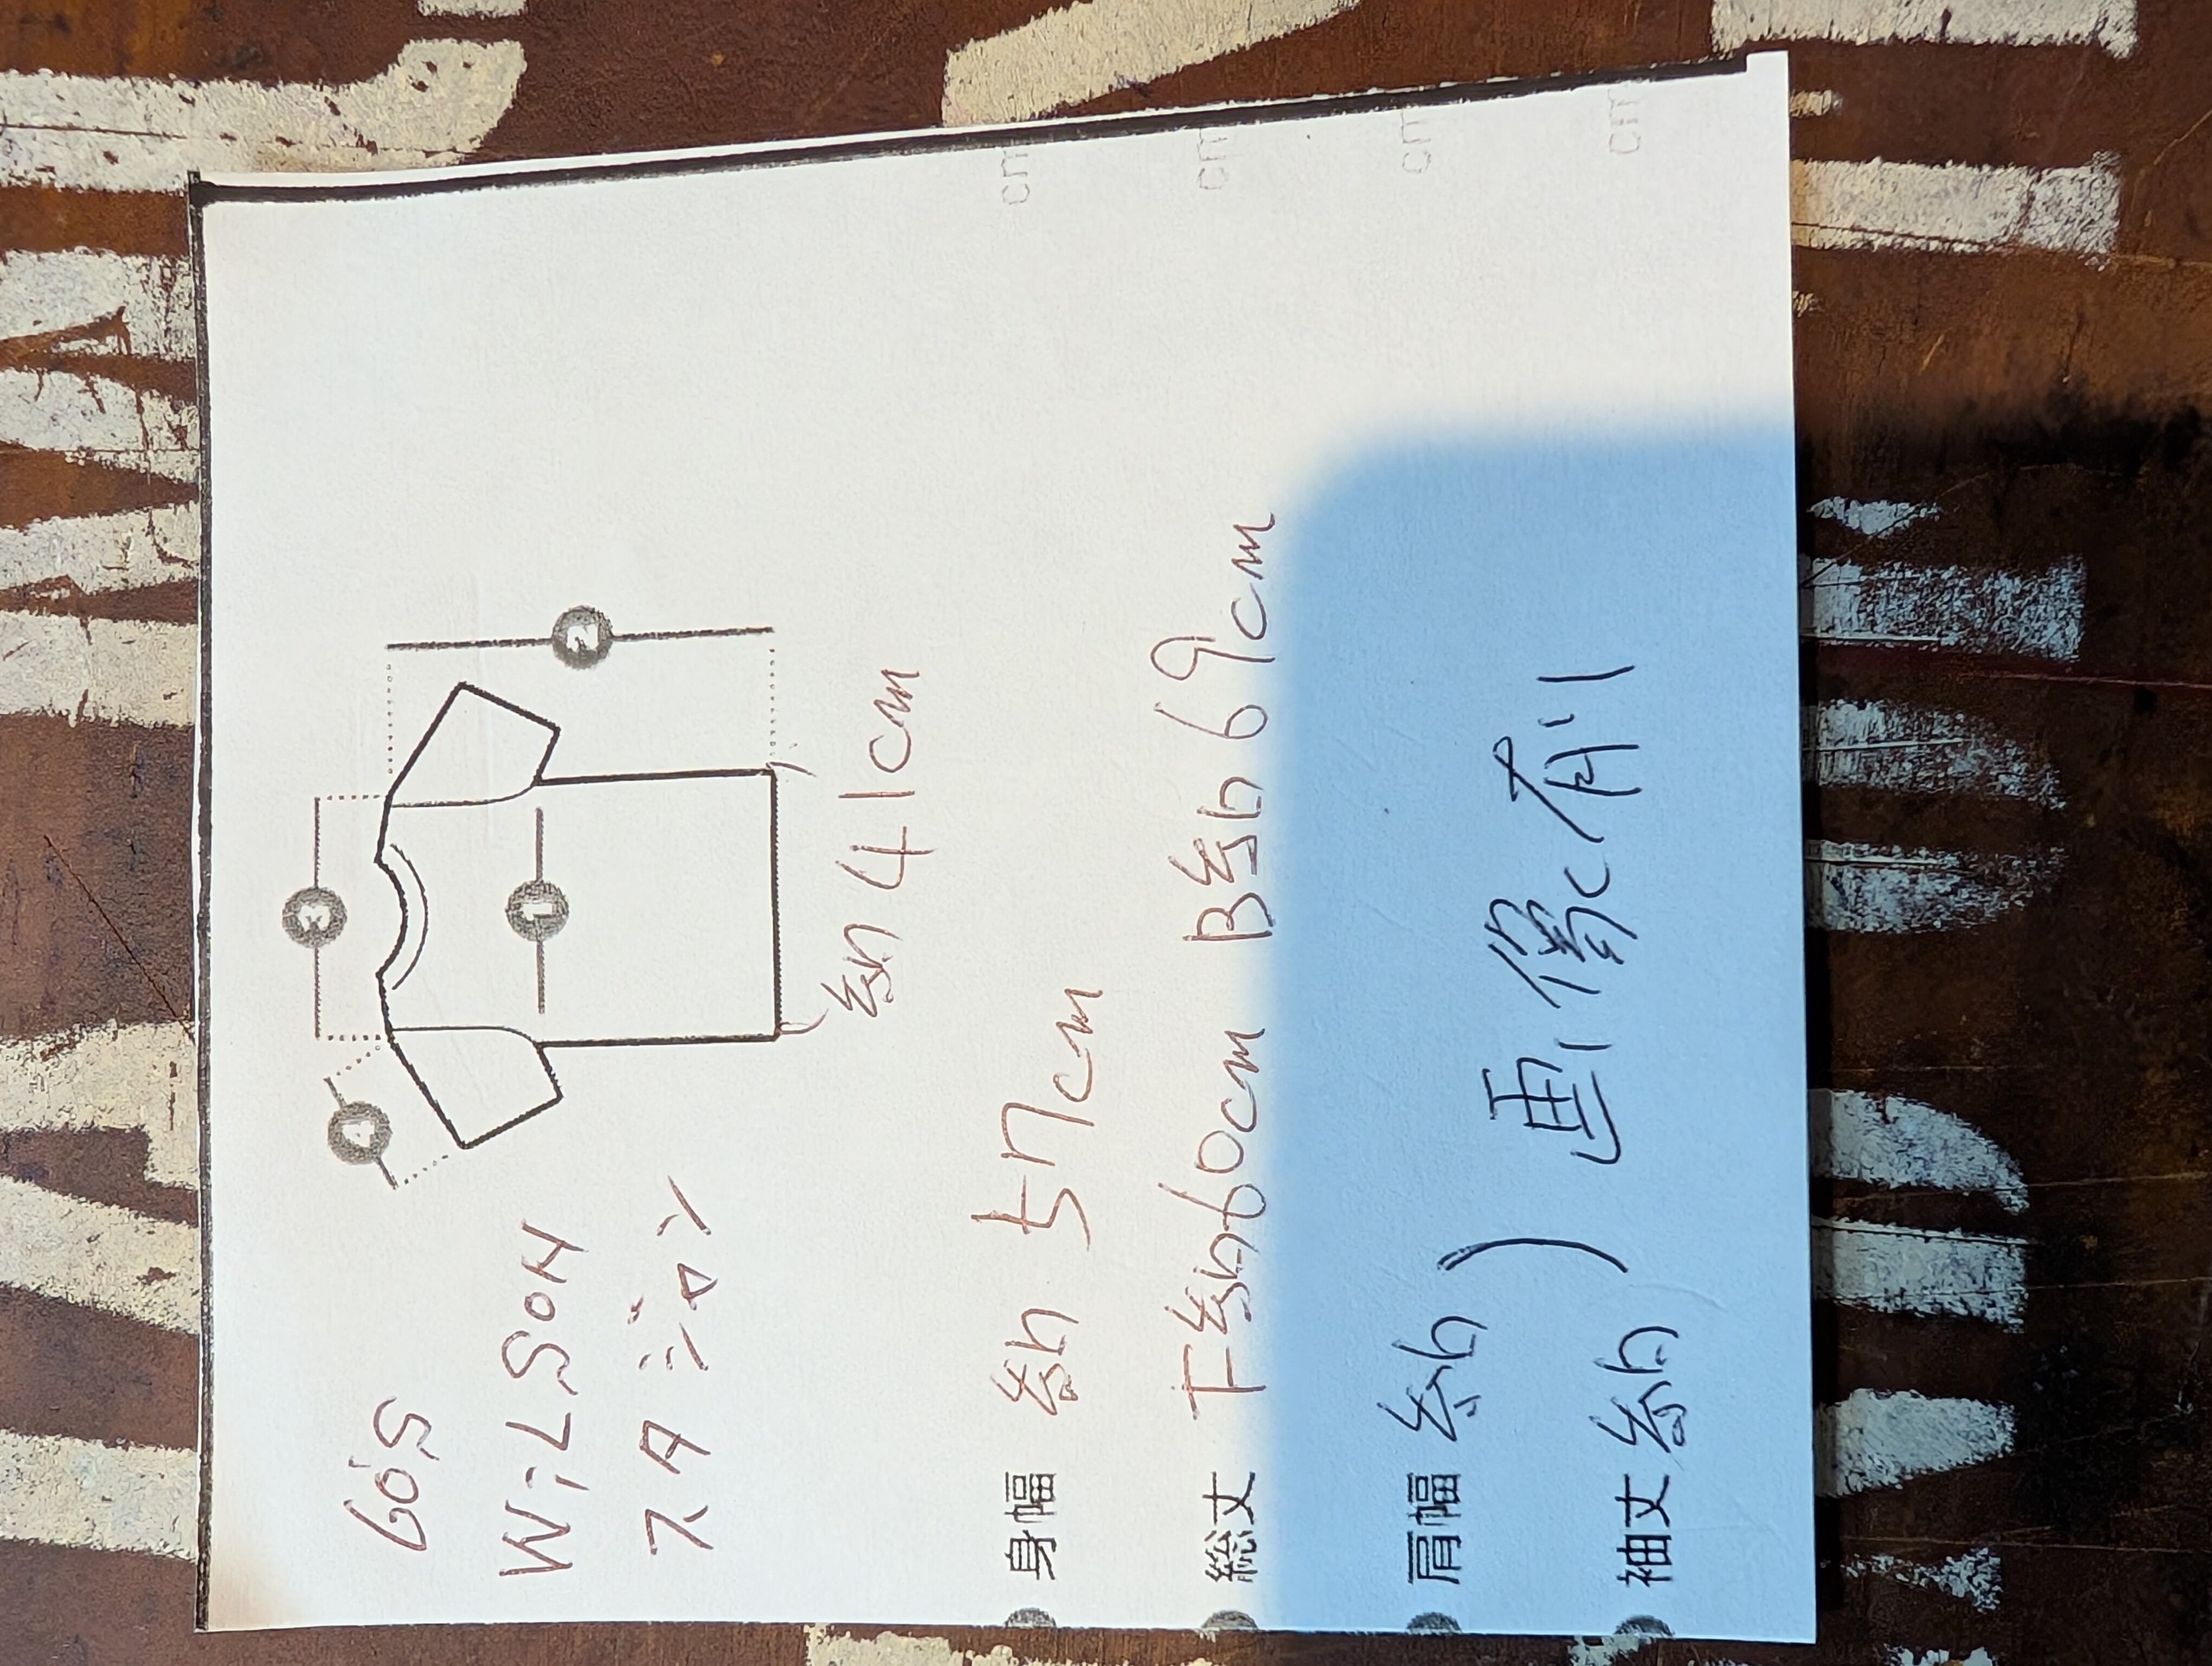 60's
WiLSON
スタジャン
3
4
1
2
約41cm
身幅 約57cm cm
総丈 F約60cm B約69cm cm
肩幅 約) cm
画像に有り
袖丈 約) cm